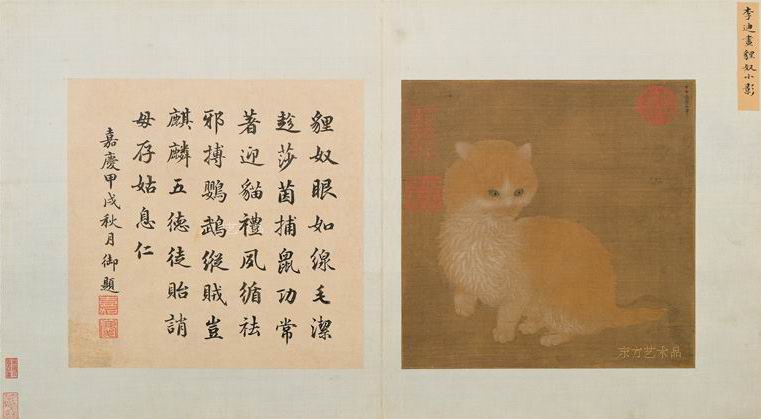 李迪畫貍奴小影
东方艺术品
貍奴眼如線毛潔
趂莎茵捕鼠功常
著迎貓禮夙循祛
邪搏鸚鵡縱賊豈
麒麟五德徒貽誚
毋存姑息仁
嘉慶甲戌秋月御題